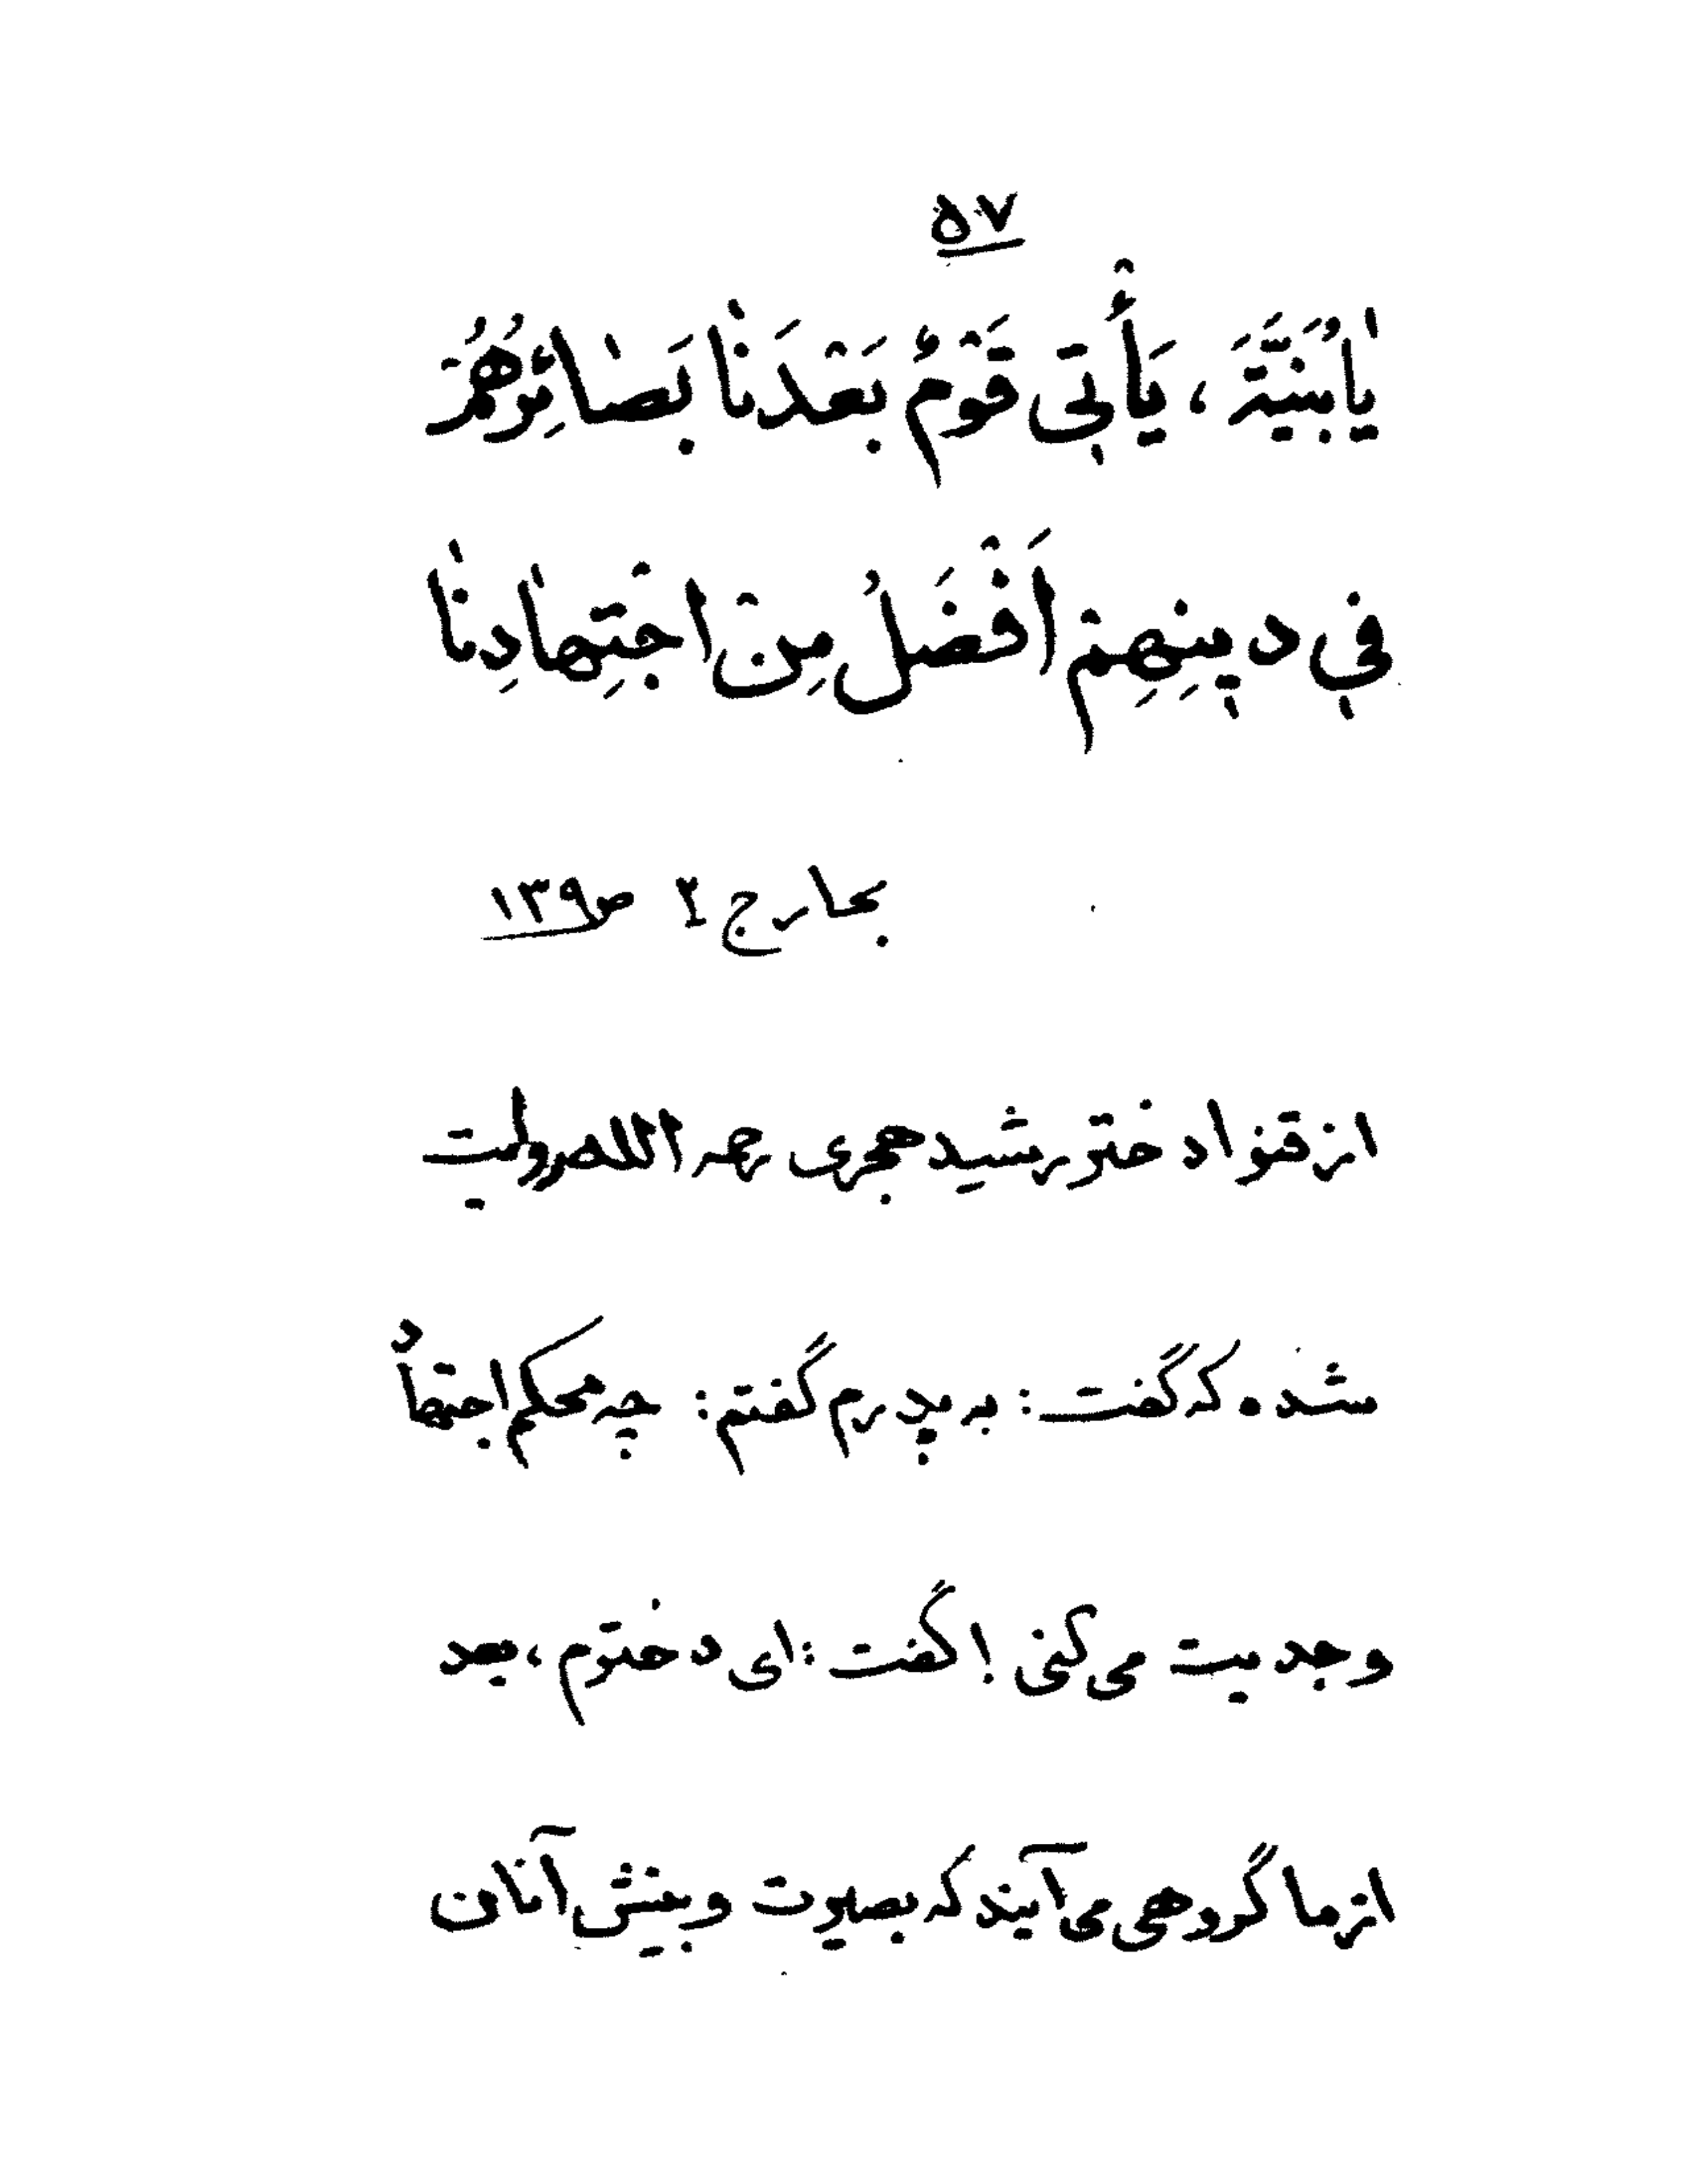 ۵۷
يٰا بُنَيَّةَ، يَأْتِي قَوْمٌ بَعْدَنٰا بَصٰائِرُهُمْ
فِي دِينِهِمْ اَفْضَلُ مِنْ اجْتِهٰادِنٰا
بحار ج ۲ ص ۱۳۹
از قنوا دختر رشید هجری رحمه الله روایت
شده که گفت: به پدرم گفتم: چه محکم اجتهاد
و جدیت می کنی! گفت: ای دخترم، بعد
از ما گروهی می آیند که بصیرت و بینش آنان